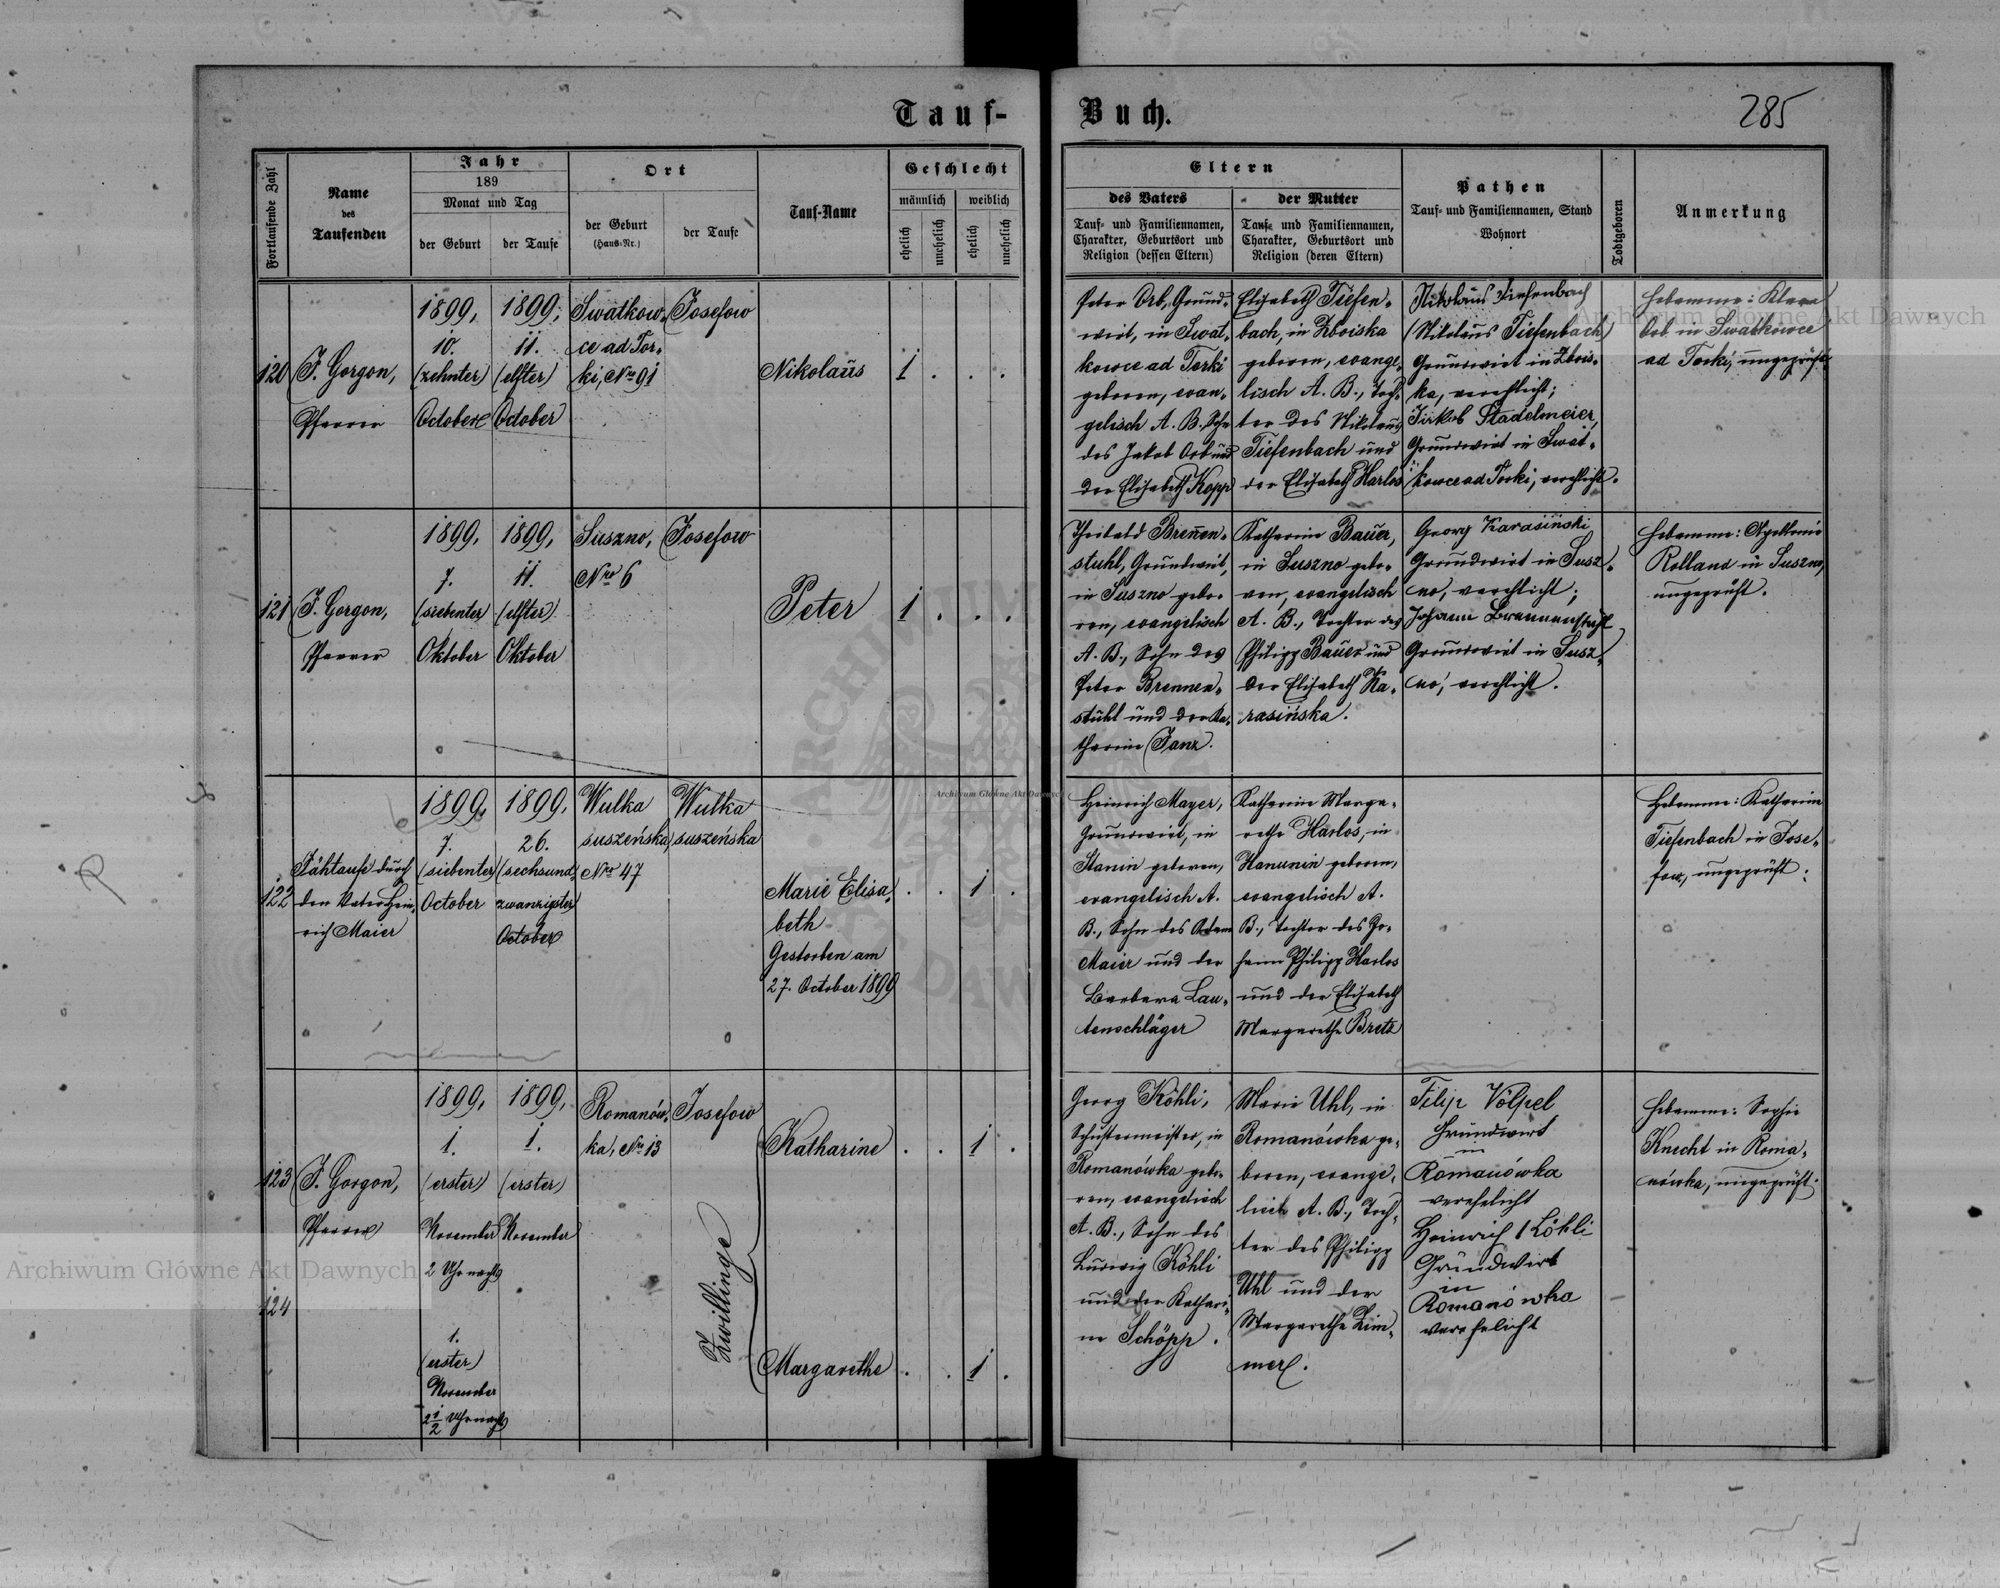 Tauf-
Buch.
285
Fortlaufende Zahl
Name
des
Taufenden
Jahr
189
Monat und Tag
der Geburt
der Taufe
Ort
der Geburt
(Haus-Nr.)
der Taufe
Tauf-Name
Geschlecht
männlich
weiblich
ehelich
unehelich
ehelich
unehelich
Eltern
des Vaters
Tauf- und Familiennamen,
Charakter, Geburtsort und
Religion (dessen Eltern)
der Mutter
Tauf- und Familiennamen,
Charakter, Geburtsort und
Religion (deren Eltern)
Pathen
Tauf- und Familiennamen, Stand
Wohnort
Todtgeboren
Anmerkung
120
J. Gorgon,
Pfarrer
1899,
10.
(zehnter)
October
1899,
11.
(elfter)
October
Swatkow-
ce ad Tor-
ki, Nro 91
Josefow
Nikolaus
1 . . .
Peter Orb, Grund-
wirt, in Swat-
kowce ad Torki
geboren, evan-
gelisch A. B. Sohn
des Jakob Orb und
der Elisabeth Kopp
Elisabeth Tiefen-
bach, in Zboiska
geboren, evange-
lisch A. B., Toch-
ter des Nikolaus
Tiefenbach und
der Elisabeth Harlos
Nikolaus Tiefenbach
(Nikolaus Tiefenbach)
Grundwirt in Zbois-
ka, verehlicht;
Jakob Stadelmeier,
Grundwirt in Swat-
kowce ad Torki, verehlicht.
Hebamme: Klara
Orb in Swatkowce
ad Torki, ungeprüft.
121
J. Gorgon,
Pfarrer
1899,
7.
(siebenter)
Oktober
1899,
11.
(elfter)
Oktober
Suszno,
Nro 6
Josefow
Peter
1 . . .
Theobald Brennen-
stuhl, Grundwirt,
in Suszno gebo-
ren, evangelisch
A. B., Sohn des
Peter Brennen-
stuhl und der Ka-
tharine Janz.
Katharine Bauer,
in Suszno gebo-
ren, evangelisch
A. B., Tochter des
Philipp Bauer und
der Elisabeth Ka-
rasińska.
Georg Karasiński
Grundwirt in Susz-
no, verehlicht;
Johann Brennenstuhl
Grundwirt in Susz-
no, verehlicht.
Hebamme: Apollonia
Rolland in Suszno,
ungeprüft.
122
Jähtaufe durch
den Vater Hein-
rich Maier
1899,
7.
(siebenter)
October
1899,
26.
(sechsund-
zwanzigster)
October
Wulka
suszeńska,
Nro 47
Wulka
suszeńska
Marie Elisa-
beth
Gestorben am
27. October 1899
. . 1 .
Heinrich Mayer,
Grundwirt, in
Stanin geboren,
evangelisch A.
B., Sohn des Adam
Maier und der
Barbara Lau-
tenschläger
Katharine Marga-
rethe Harlos, in
Hanunin geboren,
evangelisch A.
B., Tochter des Jo-
hann Philipp Harlos
und der Elisabeth
Margarethe Bretz
Hebamme: Katharine
Tiefenbach in Jose-
fow, ungeprüft.
123
J. Gorgon,
Pfarrer
1899,
1.
(erster)
November
2 Uhr nachts
1899,
1.
(erster)
November
Romanów-
ka, Nro 13
Josefow
Katharine
. . 1 .
Georg Köhli,
Schustermeister, in
Romanówka gebo-
ren, evangelisch
A. B., Sohn des
Ludwig Köhli
und der Kathari-
ne Schöpp.
Marie Uhl, in
Romanówka ge-
boren, evange-
lisch A. B., Toch-
ter des Philipp
Uhl und der
Margarethe Zim-
mer.
Filip Völpel
Grundwirt
in
Romanówka
verehelicht
Heinrich Köhli
Grundwirt
in
Romanówka
verehelicht
Hebamme: Sophie
Knecht in Roma-
nówka, ungeprüft.
124
1.
(erster)
November
2½ Uhr nachts
Zwillinge
Margarethe
. . 1 .
Archiwum Główne Akt Dawnych
Archiwum Główne Akt Dawnych
Archiwum Główne Akt Dawnych